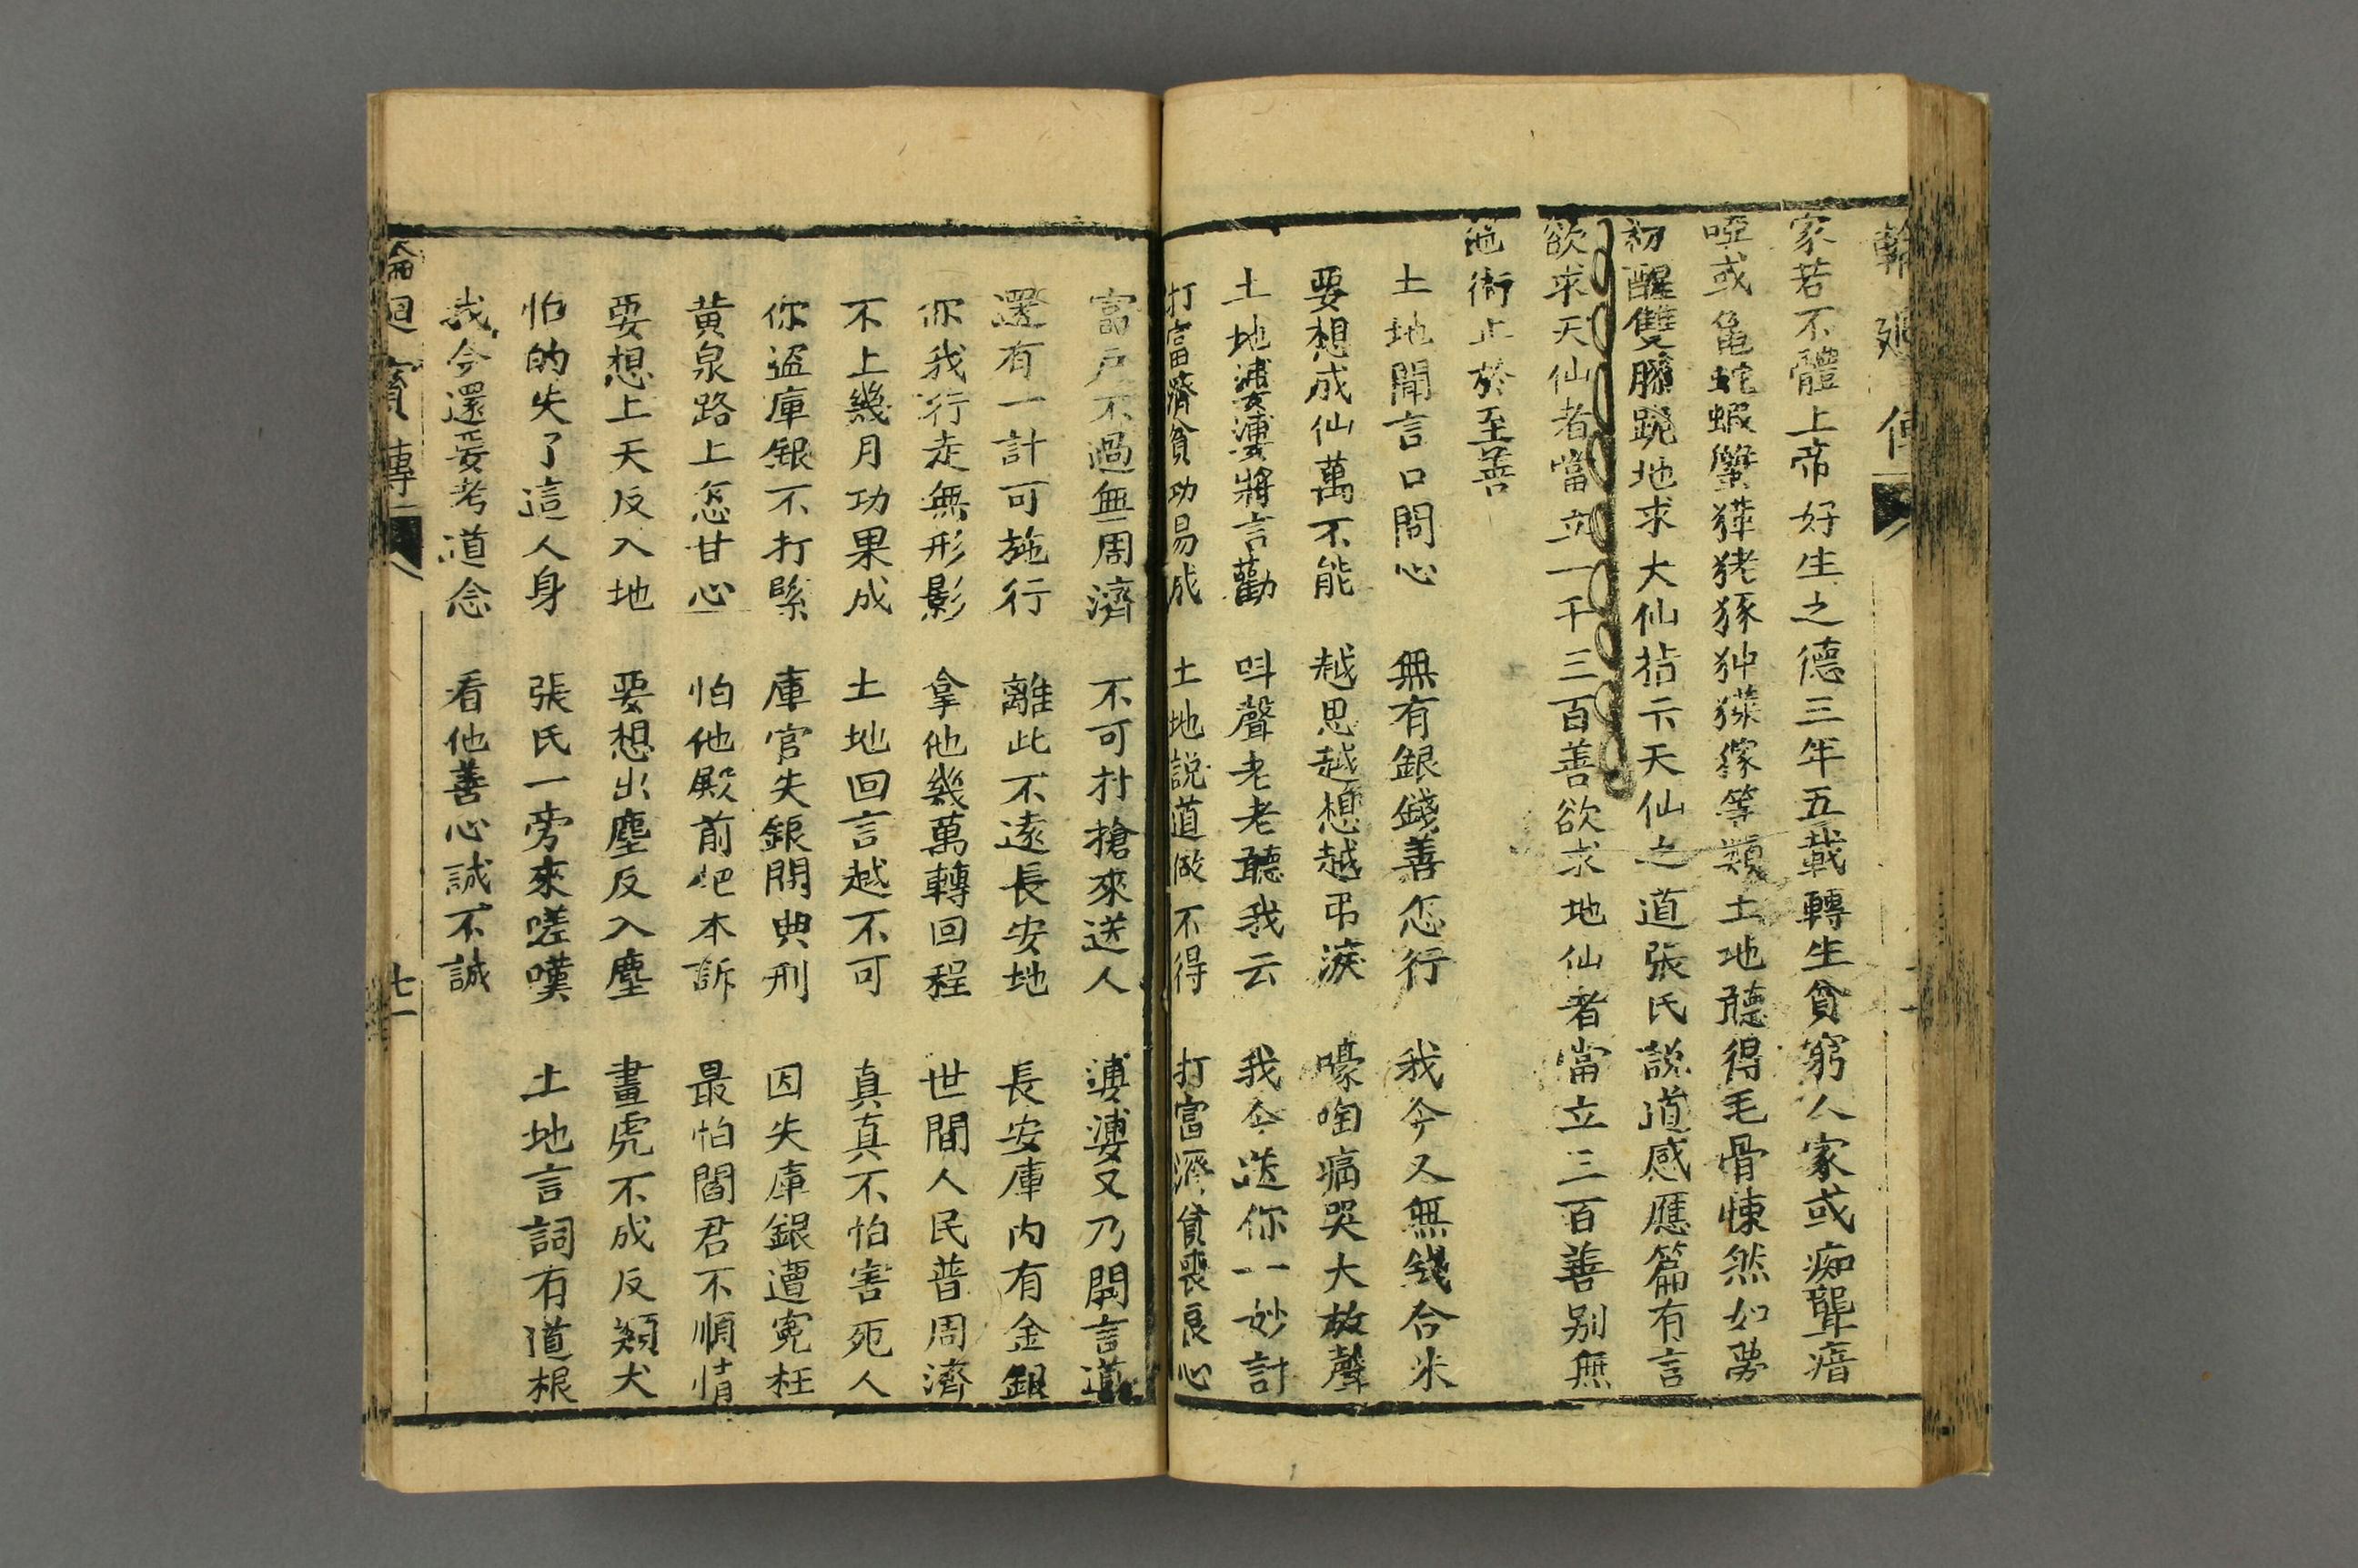 家若不體上帝好生之德三年五載轉生貧窮人家或痴聾瘖
啞或龜蛇蝦蟹等類土地聽得毛骨悚然如夢
初醒雙膝跪地求大仙指示天仙之道張氏說道感應篇有言
欲求天仙者當立一千三百善欲求地仙者當立三百善别無
他術止於至善
土地聞言口問心 無有銀錢善怎行 我今又無錢合米
要想成仙萬不能 越思越想越弔淚 嚎啕痛哭大放聲
土地婆婆將言勸 呌聲老老聽我云 我今送你一妙計
打富濟貧功易成 土地說道做不得 打富濟貧喪良心
富戶不過無周濟 不可打搶來送人 婆婆又乃開言道
還有一計可施行 離此不遠長安地 長安庫内有金銀
你我行走無形影 拿他幾萬轉回程 世間人民普周濟
不上幾月功果成 土地回言越不可 真真不怕害死人
你盗庫銀不打緊 庫官失銀問典刑 因失庫銀遭寃枉
黄泉路上怎甘心 怕他殿前把本訴 最怕閻君不順情
要想上天反入地 要想出塵反入塵 畫虎不成反類犬
怕的失了這人身 張氏一旁來嗟嘆 土地言詞有道根
我今還要考道念 看他善心誠不誠
輪迴寶傳
七一